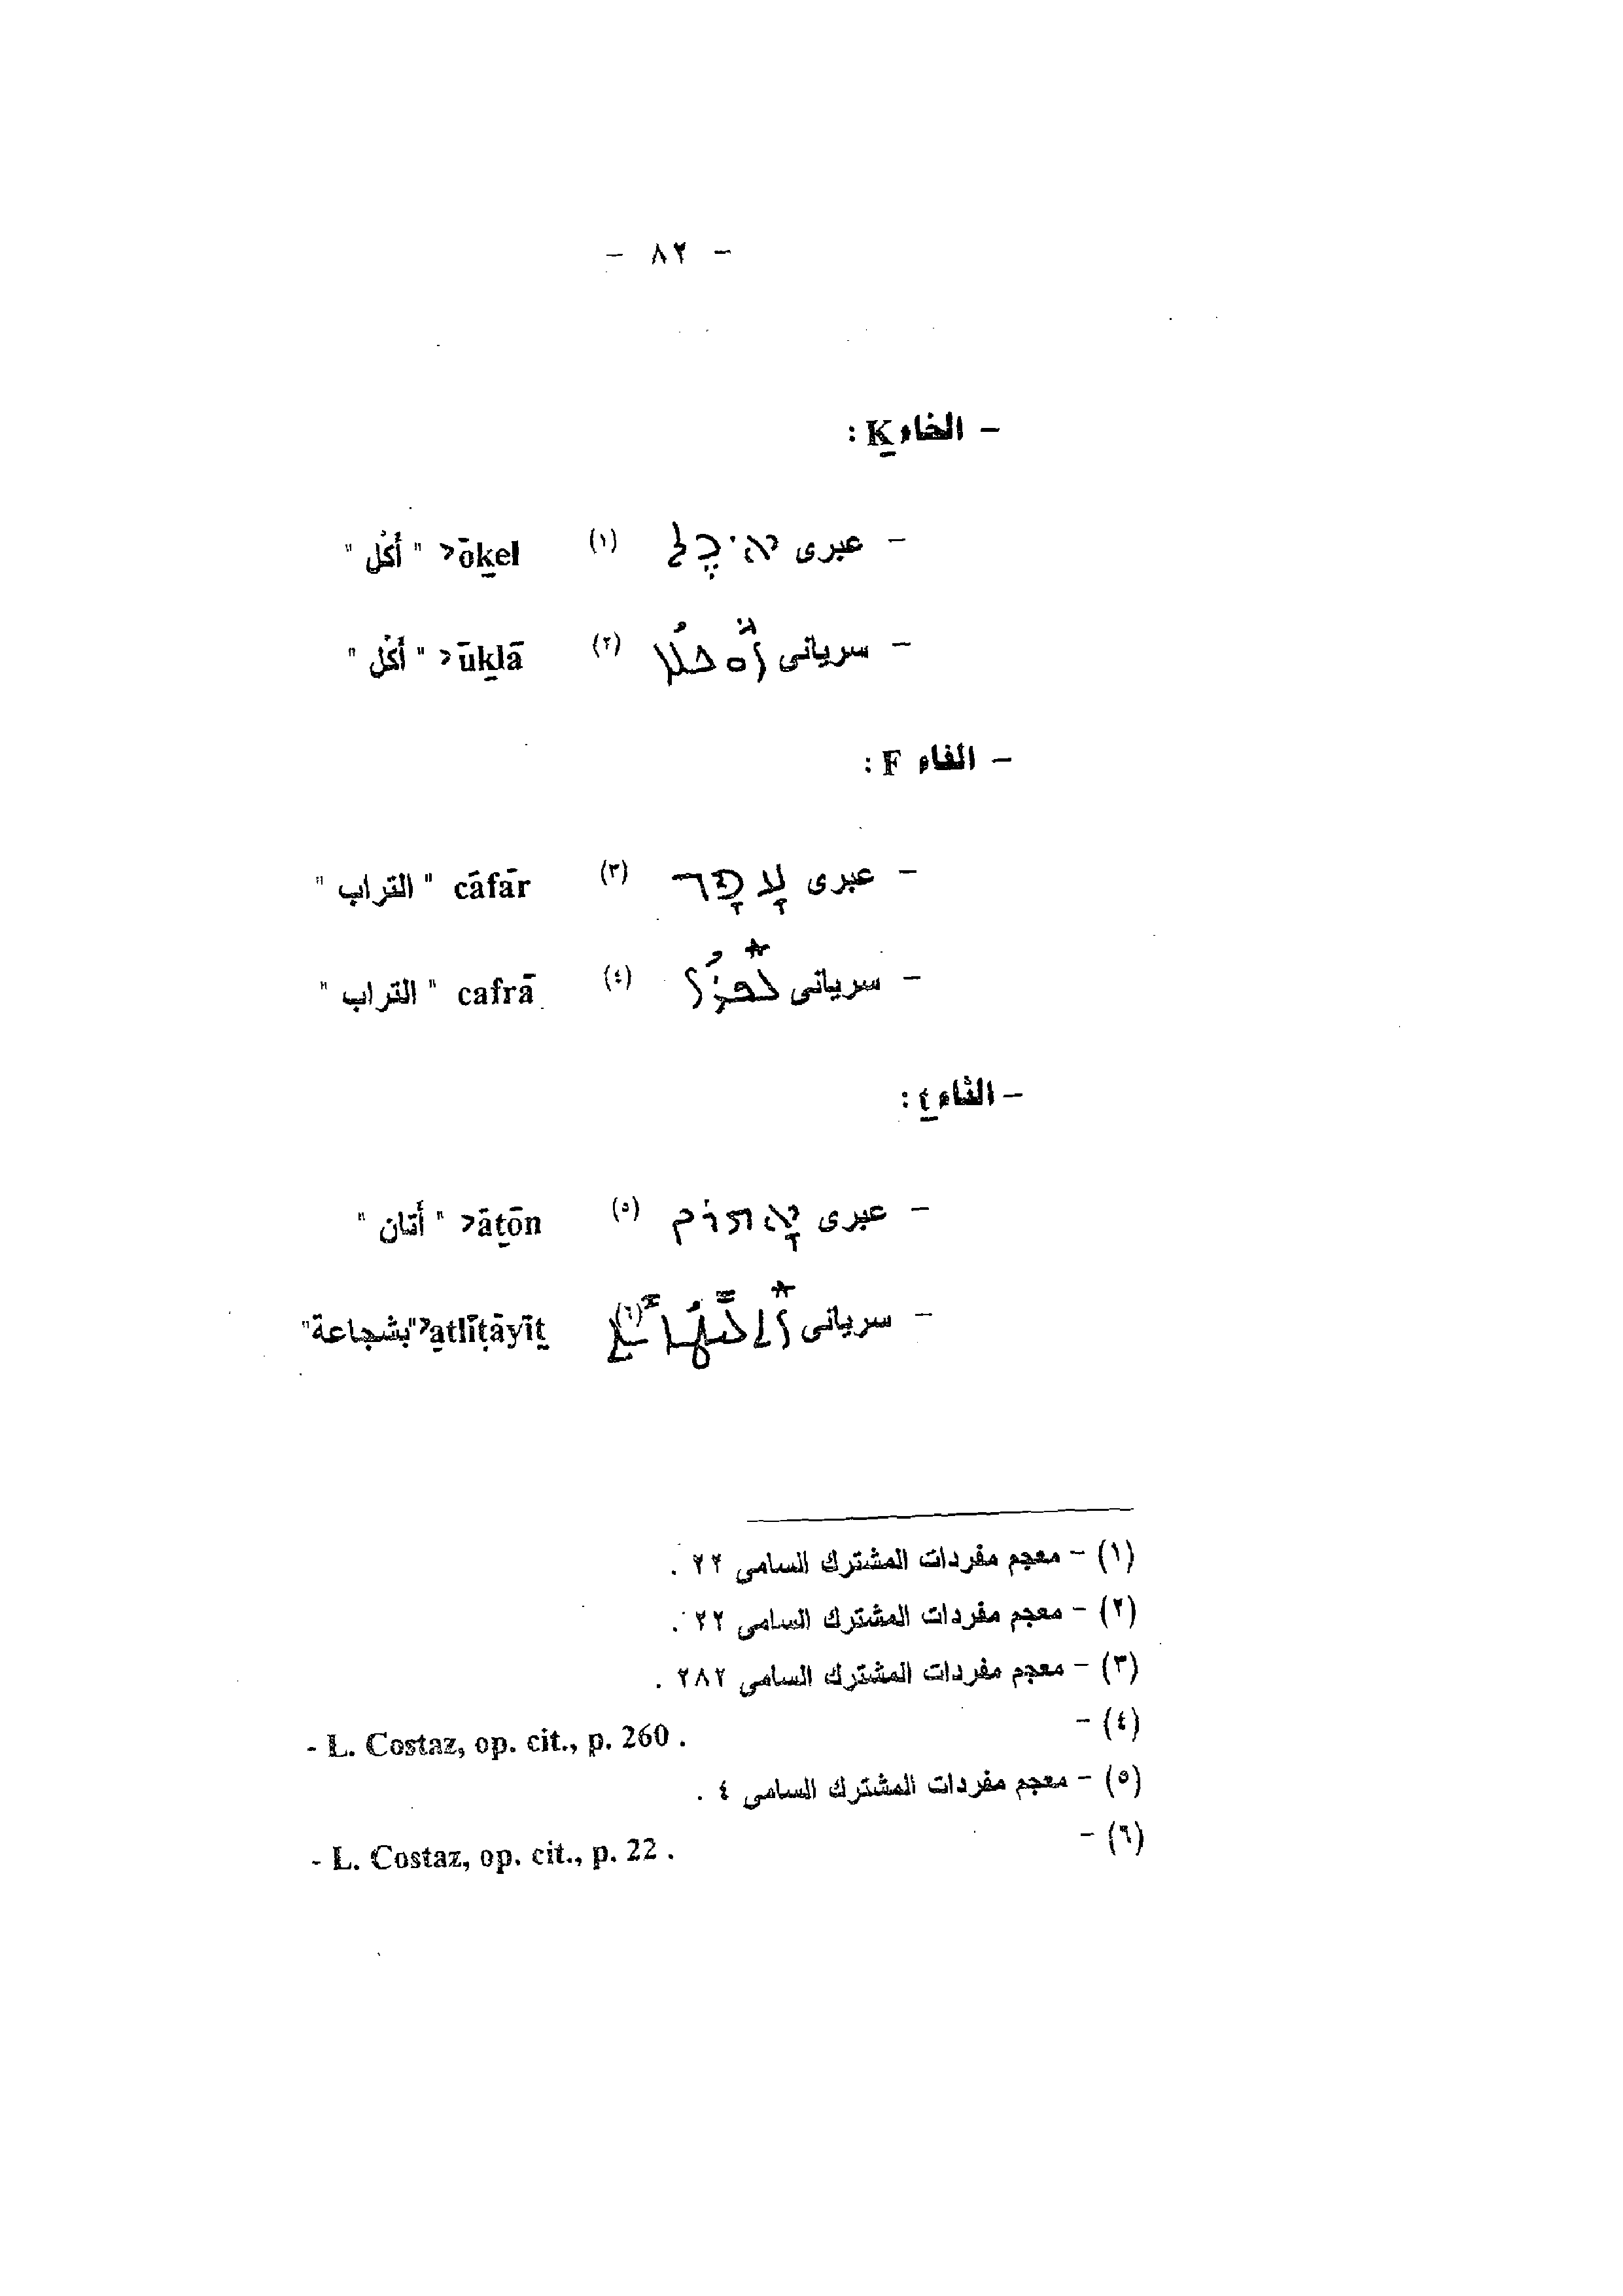 - ٨٢ -
- الخاء K̲ :
- عبرى אֹכֶל (١) >ōk̲el " أَكْل "
- سريانى ܐܘܟܠܐ (٢) >ūk̲lā " أَكْل "
- الفاء F :
- عبرى עָפָר (٣) cāfār " التراب "
- سريانى ܥܦܪܐ (٤) cafrā " التراب "
- الثاء t̲ :
- عبرى אָתוֹן (٥) >āt̲ōn " أَتان "
- سريانى ܐܬܠܝܛܐܝܬ (٦) >at̲līṭāyīt̲ "بشجاعة"
(١) - معجم مفردات المشترك السامى ٢٢ .
(٢) - معجم مفردات المشترك السامى ٢٢ .
(٣) - معجم مفردات المشترك السامى ٢٨٢ .
(٤) - - L. Costaz, op. cit., p. 260 .
(٥) - معجم مفردات المشترك السامى ٤ .
(٦) - - L. Costaz, op. cit., p. 22 .